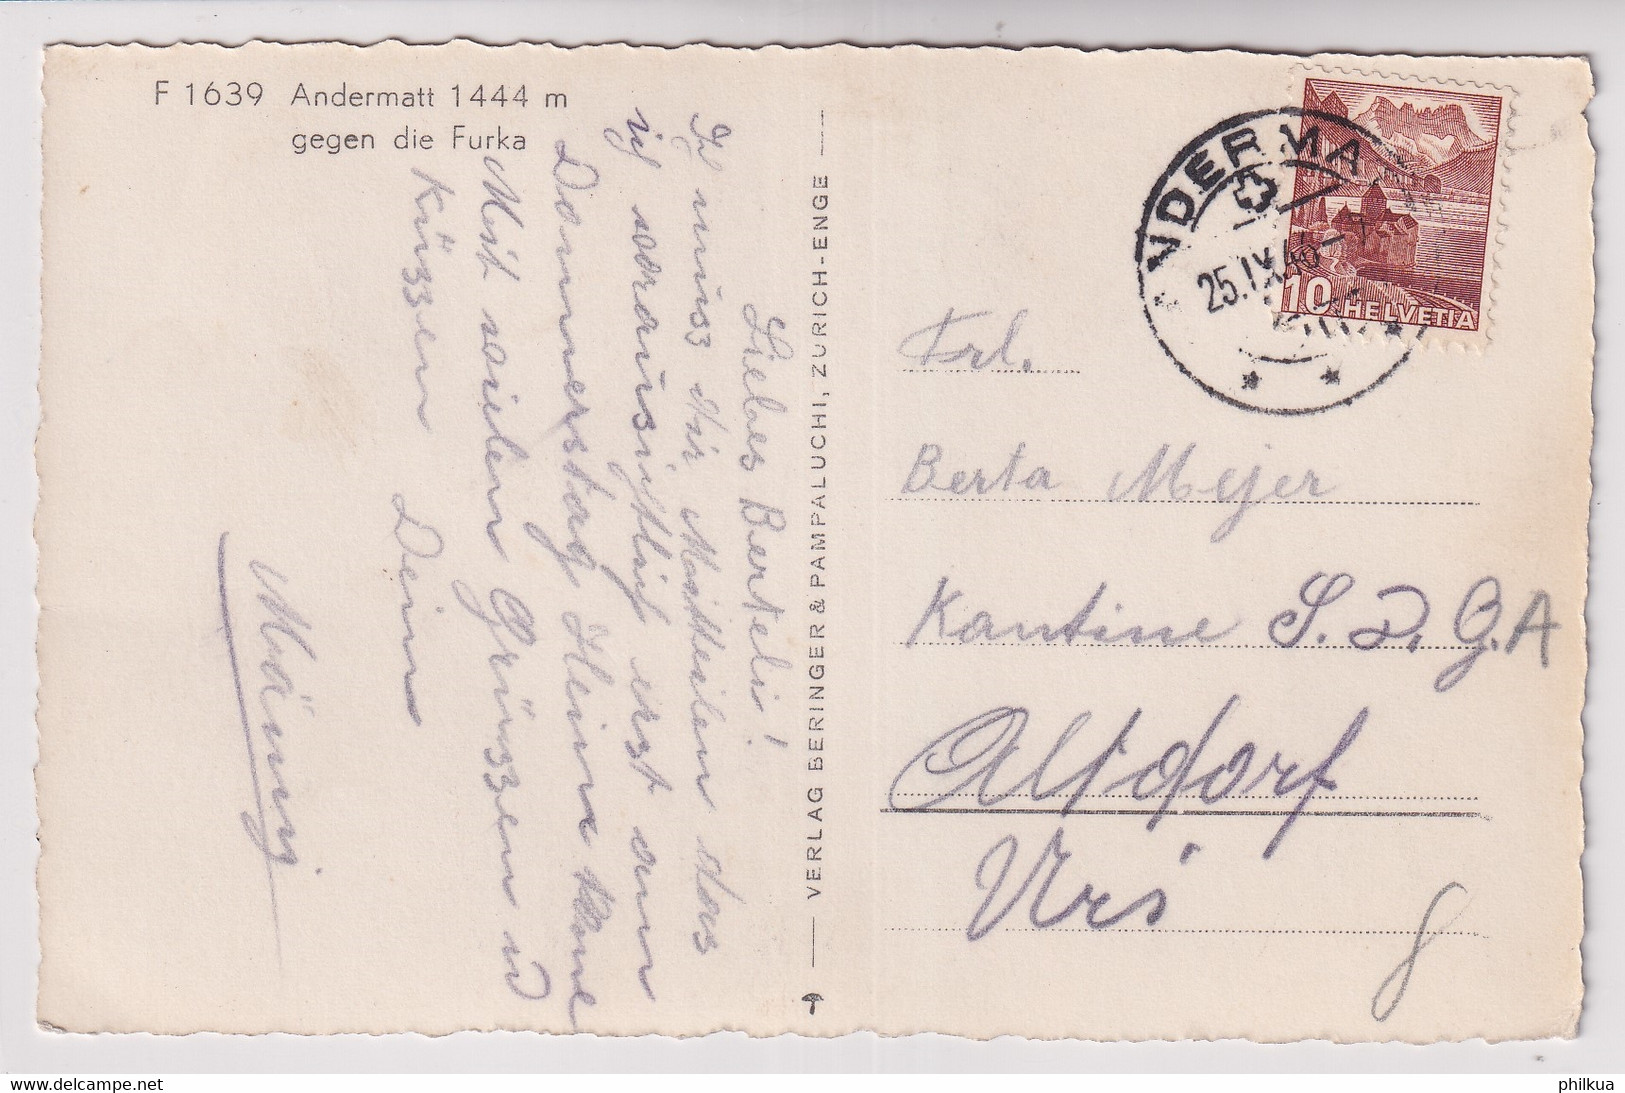 F 1639 Andermatt 1444 m
gegen die Furka
Liebes Berteli!
Ich muss dir Mitteilen das
ich voraussichtlich erst am
Donnerstag Heim kome
Mit vielen Grüssen u
Küssen Dein
VERLAG BERINGER & PAMPALUCHI, ZÜRICH-ENGE
ANDERMA
25.IX.46-7
10 HELVETIA
Frl.
Berta Mejer
Kantine S. D. G. A
Altdorf
Uri
philkua